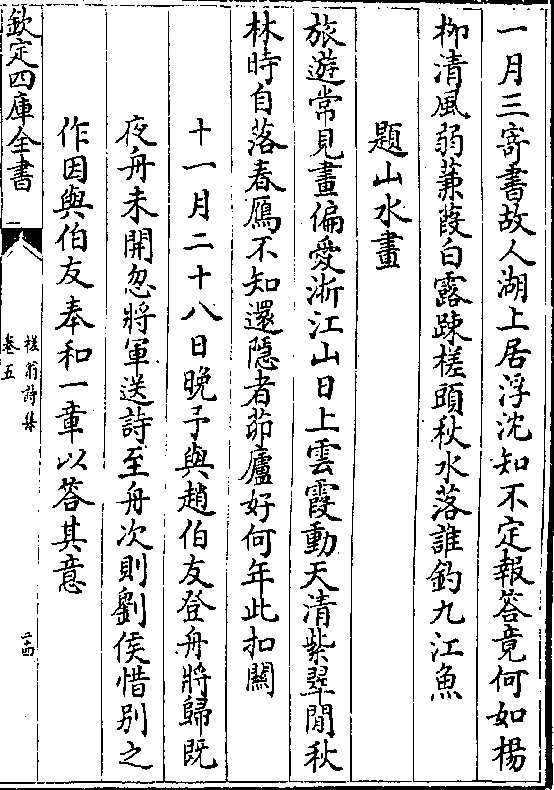 一月三寄書故人湖上居浮沈知不定報答竟何如楊
柳清風弱蒹葭白露疎槎頭秋水落誰釣九江魚
題山水畫
旅遊常見畫偏愛浙江山日上雲霞動天清紫翠閒秋
林時自落春鴈不知還隠者茆廬好何年此扣關
十一月二十八日晚予與趙伯友登舟將歸既
夜舟未開忽將軍送詩至舟次則劉侯惜别之
作因與伯友奉和一章以答其意
欽定四庫全書
槎翁詩集
卷五
二十四